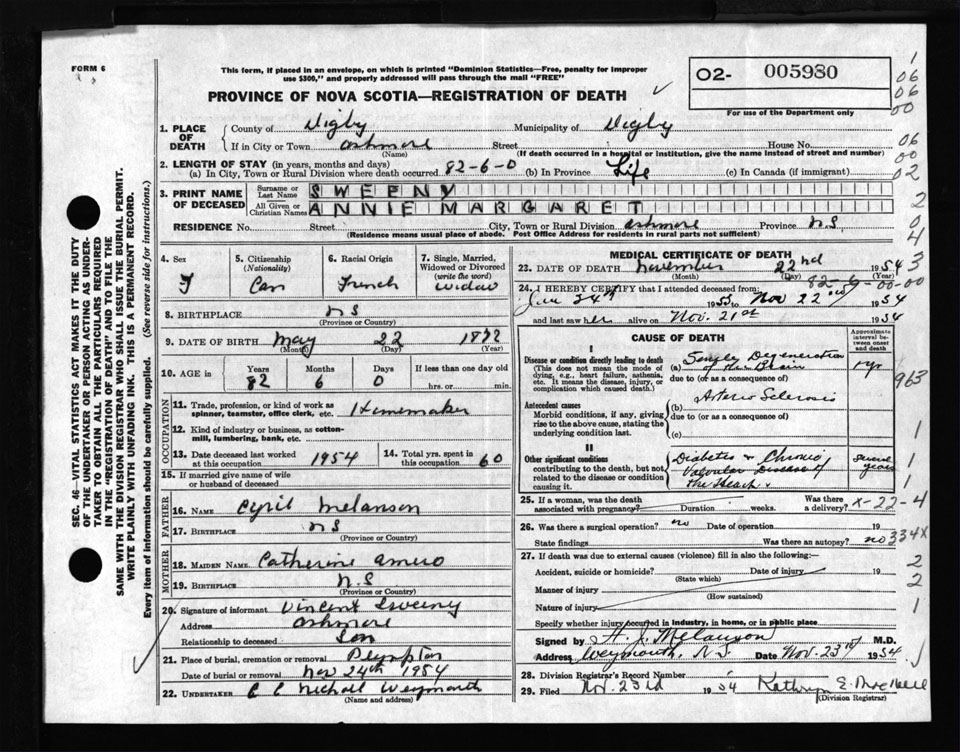 FORM 6
This form, if placed in an envelope, on which is printed "Dominion Statistics—Free, penalty for improper
use $300," and properly addressed will pass through the mail "FREE"
PROVINCE OF NOVA SCOTIA—REGISTRATION OF DEATH
02- 005980
For use of the Department only
1. PLACE OF DEATH
County of Digby Municipality of Digby
If in City or Town Ashmore Street House No.
(Name) (If death occurred in a hospital or institution, give the name instead of street and number)
2. LENGTH OF STAY (in years, months and days)
(a) In City, Town or Rural Division where death occurred 82-6-0 (b) In Province Life (c) In Canada (if immigrant)
3. PRINT NAME OF DECEASED
Surname or Last Name SWEENY
All Given or Christian Names ANNIE MARGARET
RESIDENCE No. Street City, Town or Rural Division Ashmore Province NS
(Residence means usual place of abode. Post Office Address for residents in rural parts not sufficient)
4. Sex F
5. Citizenship (Nationality) Can
6. Racial Origin French
7. Single, Married, Widowed or Divorced (write the word) widow
8. BIRTHPLACE NS
(Province or Country)
9. DATE OF BIRTH May 22 1872
(Month) (Day) (Year)
10. AGE in Years 82 Months 6 Days 0 If less than one day old hrs. or min.
OCCUPATION
11. Trade, profession, or kind of work as spinner, teamster, office clerk, etc. Homemaker
12. Kind of industry or business, as cotton-mill, lumbering, bank, etc.
13. Date deceased last worked at this occupation 1954
14. Total yrs. spent in this occupation 60
15. If married give name of wife or husband of deceased
FATHER
16. Name Cyril Melanson
17. Birthplace NS
(Province or Country)
MOTHER
18. MAIDEN NAME Catherine Amero
19. BIRTHPLACE N.S
(Province or Country)
20. Signature of informant Vincent Sweeny
Address Ashmore
Relationship to deceased Son
21. Place of burial, cremation or removal Plympton
Date of burial or removal Nov 24th 1954
22. UNDERTAKER C C Nicholl Weymouth
(Name and address)
MEDICAL CERTIFICATE OF DEATH
23. DATE OF DEATH November 22nd 1954
(Month) (Day) (Year)
82-6-00-00
24. I HEREBY CERTIFY that I attended deceased from:
24th 1953 to Nov 22nd 1954
and last saw her alive on Nov. 21st 1954
CAUSE OF DEATH
Approximate interval between onset and death
I
Disease or condition directly leading to death
(This does not mean the mode of dying, e.g., heart failure, asthenia, etc. It means the disease, injury, or complication which caused death.)
(a) Senile Degeneration of the Brain 1 yr
due to (or as a consequence of)
Antecedent causes
Morbid conditions, if any, giving rise to the above cause, stating the underlying condition last.
(b) Arterio Sclerosis
due to (or as a consequence of)
(c)
II
Other significant conditions contributing to the death, but not related to the disease or condition causing it.
Diabetes & Chronic Valvular Disease of the Heart. Several years
25. If a woman, was the death associated with pregnancy? Duration weeks. Was there a delivery? x-22-4
26. Was there a surgical operation? no Date of operation 19
State findings Was there an autopsy? no 334X
27. If death was due to external causes (violence) fill in also the following:—
Accident, suicide or homicide? Date of injury 19
(State which)
Manner of injury
(How sustained)
Nature of injury
Specify whether injury occurred in industry, in home, or in public place
Signed by A. J. Melanson M.D.
Address Weymouth, N.S. Date Nov. 23rd 1954
28. Division Registrar's Record Number
29. Filed Nov. 23rd 1954 Kathryn E.
(Division Registrar)
SEC. 46—VITAL STATISTICS ACT MAKES IT THE DUTY
OF THE UNDERTAKER OR PERSON ACTING AS UNDER-
TAKER TO OBTAIN ALL THE PARTICULARS REQUIRED
IN THE "REGISTRATION OF DEATH" AND TO FILE THE
SAME WITH THE DIVISION REGISTRAR WHO SHALL ISSUE THE BURIAL PERMIT.
WRITE PLAINLY WITH UNFADING INK. THIS IS A PERMANENT RECORD.
Every item of information should be carefully supplied. (See reverse side for instructions.)
1
06
06
00
06
00
02
2
0
4
3
963
1
1
1
2
2
1